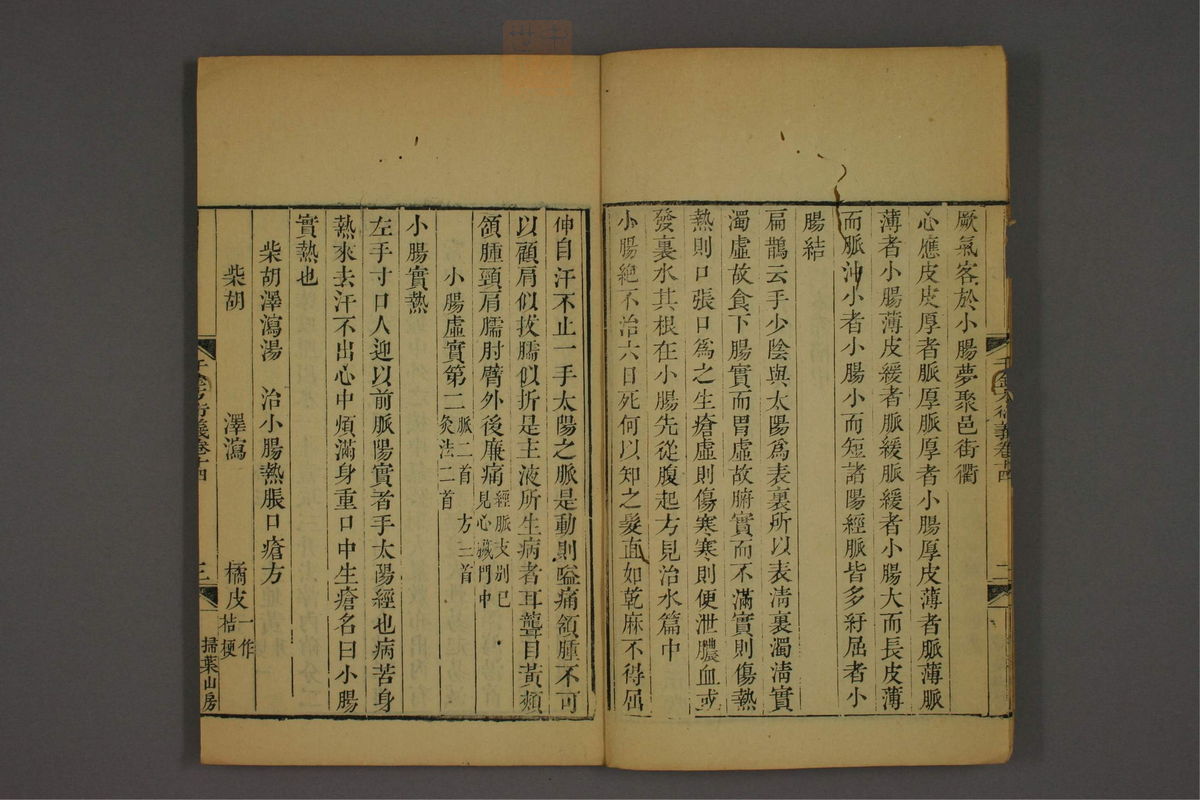 厥氣客於小腸夢聚邑街衢
心應皮皮厚者脈厚脈厚者小腸厚皮薄者脈薄脈
薄者小腸薄皮緩者脈緩脈緩者小腸大而長皮薄
而脈沖小者小腸小而短諸陽經脈皆多紆屈者小
腸結
扁鵲云手少陰與太陽爲表裏所以表淸裏濁淸實
濁虛故食下腸實而胃虛故腑實而不滿實則傷熱
熱則口張口爲之生瘡虛則傷寒寒則便泄膿血或
發裏水其根在小腸先從腹起方見治水篇中
小腸絶不治六日死何以知之髮直如乾麻不得屈
千金方衍義卷十四
二
伸自汗不止一手太陽之脈是動則嗌痛頷腫不可
以顧肩似拔臑似折是主液所生病者耳聾目黃頰
頷腫頸肩臑肘臂外後廉痛經脈支別已見心臟門中
小腸虛實第二脈二首 方三首 灸法二首
小腸實熱
左手寸口人迎以前脈陽實者手太陽經也病苦身
熱來去汗不出心中煩滿身重口中生瘡名曰小腸
實熱也
柴胡澤瀉湯 治小腸熱脹口瘡方
柴胡 澤瀉 橘皮一作桔梗
千金方衍義卷十四
三
掃葉山房